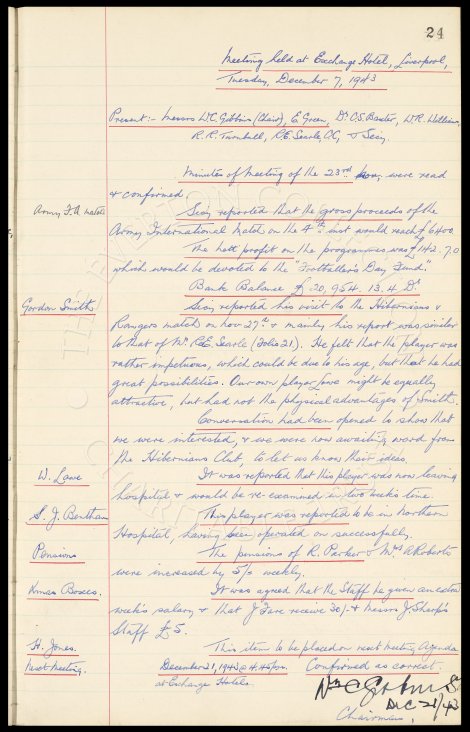 24
Meeting held at Exchange Hotel, Liverpool,
Tuesday, December 7, 1943
Present:- Messrs W.C. Gibbins (Chair), E. Green, Dr. C.S. Baxter, W.R. Williams,
R.R. Turnbull, R.E. Searle, C.C., & Secy.
Minutes of Meeting of the 23rd Nov. were read
& confirmed
Army F.A. match
Secy reported that the gross proceeds of the
Army International match on the 4th inst would reach £6400
The nett profit on the programmes was £142.7.0
which would be devoted to the "Footballer's Day Fund".
Bank Balance £20,954. 13. 4 Dr
Gordon Smith
Secy reported his visit to the Hibernians v
Rangers match on Nov 27th & mainly his report was similar
to that of Mr. R.E. Searle (Folio 21). He felt that the player was
rather impetuous, which could be due to his age, but that he had
great possibilities. Our own player Lowe might be equally
attractive, but had not the physical advantages of Smith.
Conversation had been opened to show that
we were interested, & we were now awaiting word from
the Hibernians Club, to let us know their ideas
W. Lowe
It was reported that this player was now leaving
hospital & would be re-examined in two week's time.
S. J. Bentham
This player was reported to be in Northern
Hospital, having been operated on successfully.
Pensions
The pensions of R. Parker & Mrs A Roberts
were increased by 5/s weekly.
Xmas Boxes.
It was agreed that the Staff be given an extra
week's salary, & that J Fare receive 30/- & Messrs J. Sharp's
Staff £5.
H. Jones.
This item to be placed on next meeting Agenda
Next Meeting.
December 21, 1943 @ 4.45 pm.
at Exchange Hotel.
Confirmed as correct.
Wm C Gibbins
Dec 21/43
Chairman,